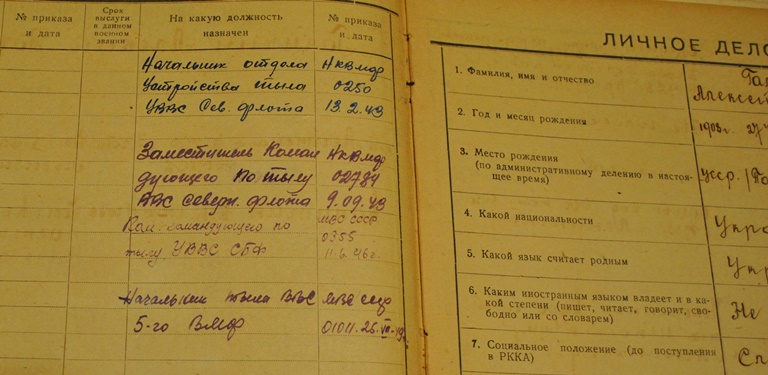 № приказа и дата
Срок выслуги в данном военном звании
На какую должность назначен
№ приказа и дата
Начальник отдела НКВМФ
Устройства тыла 0250
УВВС Сев. флота 13.2.43
Заместитель Коман НКВМФ
дующего по тылу 02784
ВВС Северн. флота 9.09.43
командующего по МВО СССР
тылу УВВС СФ 11.6.46г.
Начальник тыла ВВС
5-го ВМФ
ЛИЧНОЕ ДЕЛО
1. Фамилия, имя и отчество
Алексей
2. Год и месяц рождения
1903г. 27
3. Место рождения
(по административному делению в настоя-
щее время)
УССР
4. Какой национальности
Укра
5. Какой язык считает родным
Укр
6. Каким иностранным языком владеет и в ка-
кой степени (пишет, читает, говорит, сво-
бодно или со словарем)
Не
7. Социальное положение (до поступления
в РККА)